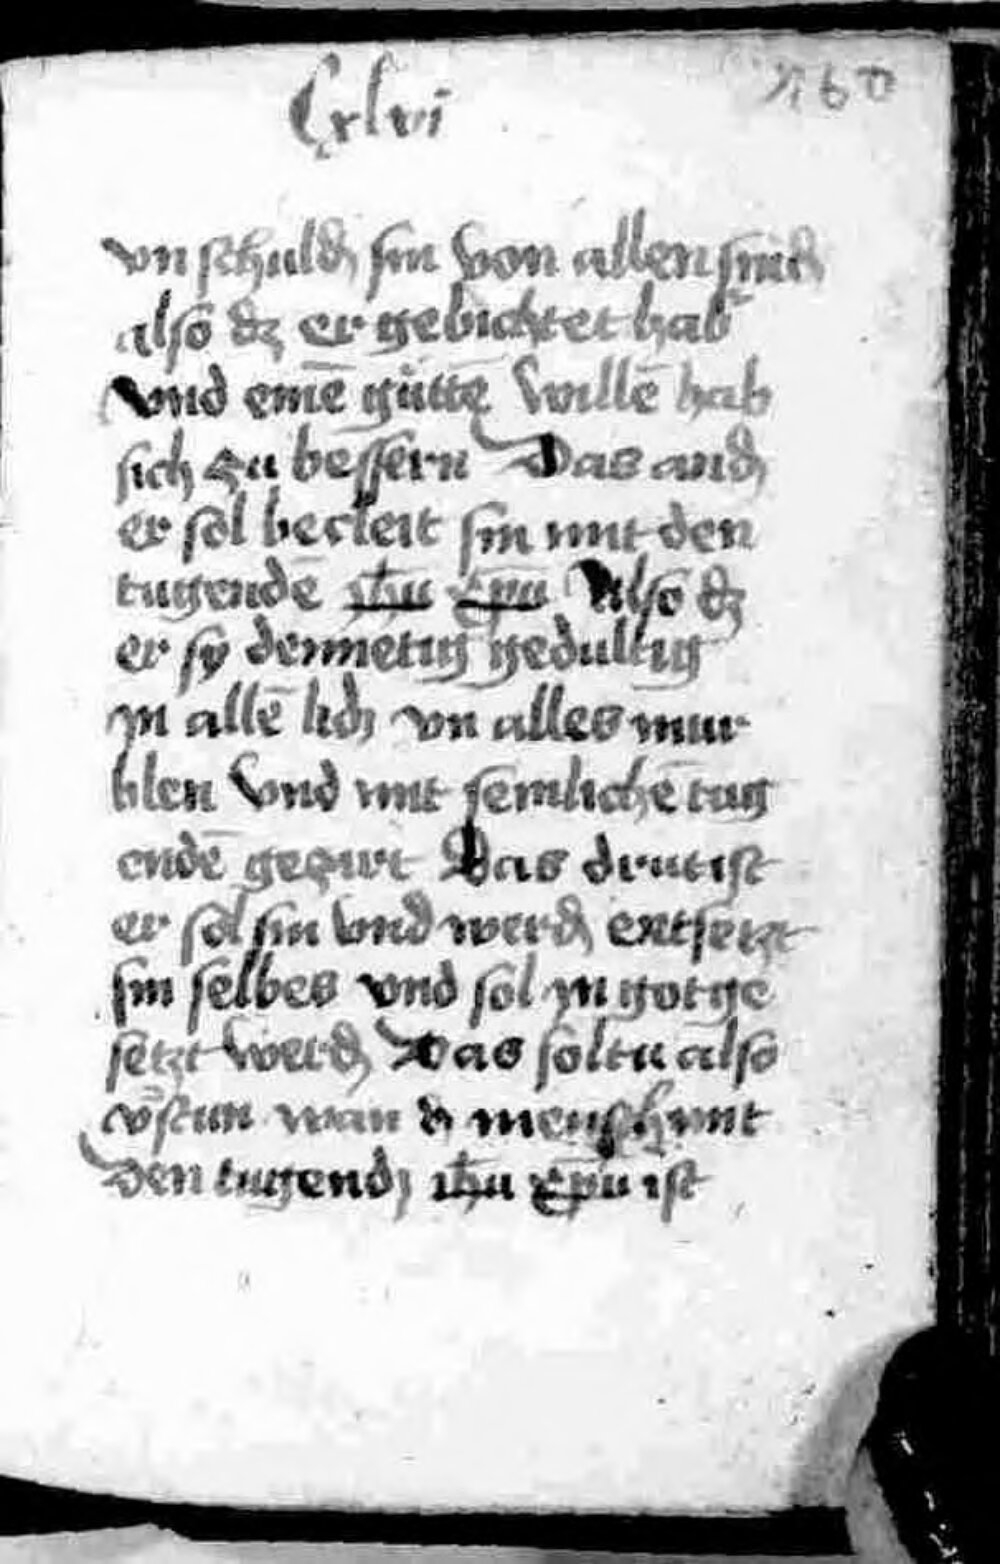 Cxlvi 160
vnschuldꝫ sin von allen sündꝫ
also dꝫ er gebichtet hab
vnd einē gůttē willē hab
sich zu bessern Das andꝫ
er sol becleit sin mit den
tugendē ih̅u xp̅u Also dꝫ
er sy demmetig gedultig
jn allē lidꝫ vn alles mur
blen vnd mit semlichē tug
endē geziert Das drit ist
er sol sin vnd werdꝫ entsetzt
sin selbes vnd sol jn got ge
setzt werdꝫ Das soltu also
v̄stun wan d mensch mit
den tugendꝫ ih̅u xp̅u ist